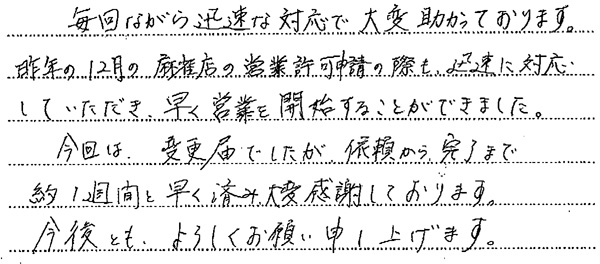 毎回ながら迅速な対応で大変助かっております。
昨年の12月の麻雀店の営業許可申請の際も、迅速に対応
していただき、早く営業を開始することができました。
今回は、変更届でしたが、依頼から完了まで
約1週間と早く済み大変感謝しております。
今後とも、よろしくお願い申し上げます。